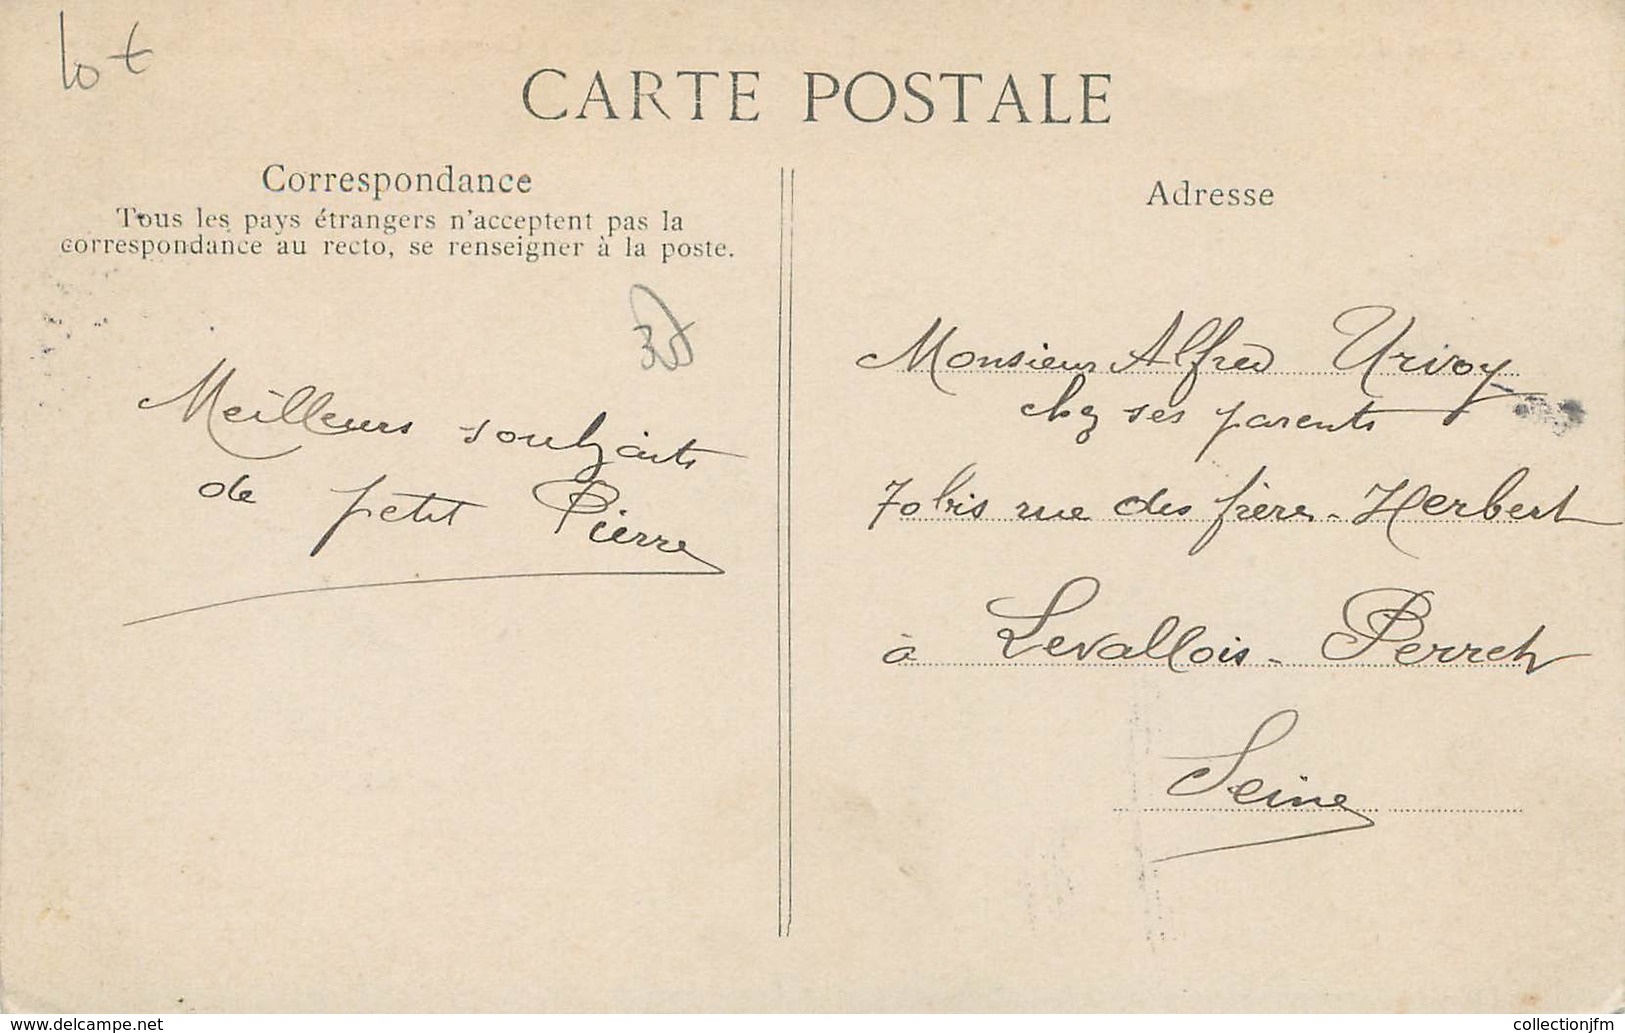 lot
CARTE POSTALE
Correspondance
Tous les pays étrangers n'acceptent pas la
correspondance au recto, se renseigner à la poste.
Meilleurs souhaits
de petit Pierre
Adresse
Monsieur Alfred Urvoy
chez ses parents
70bis rue des frères-Herbert
à Levallois-Perret
Seine
www.delcampe.net
collectionjfm